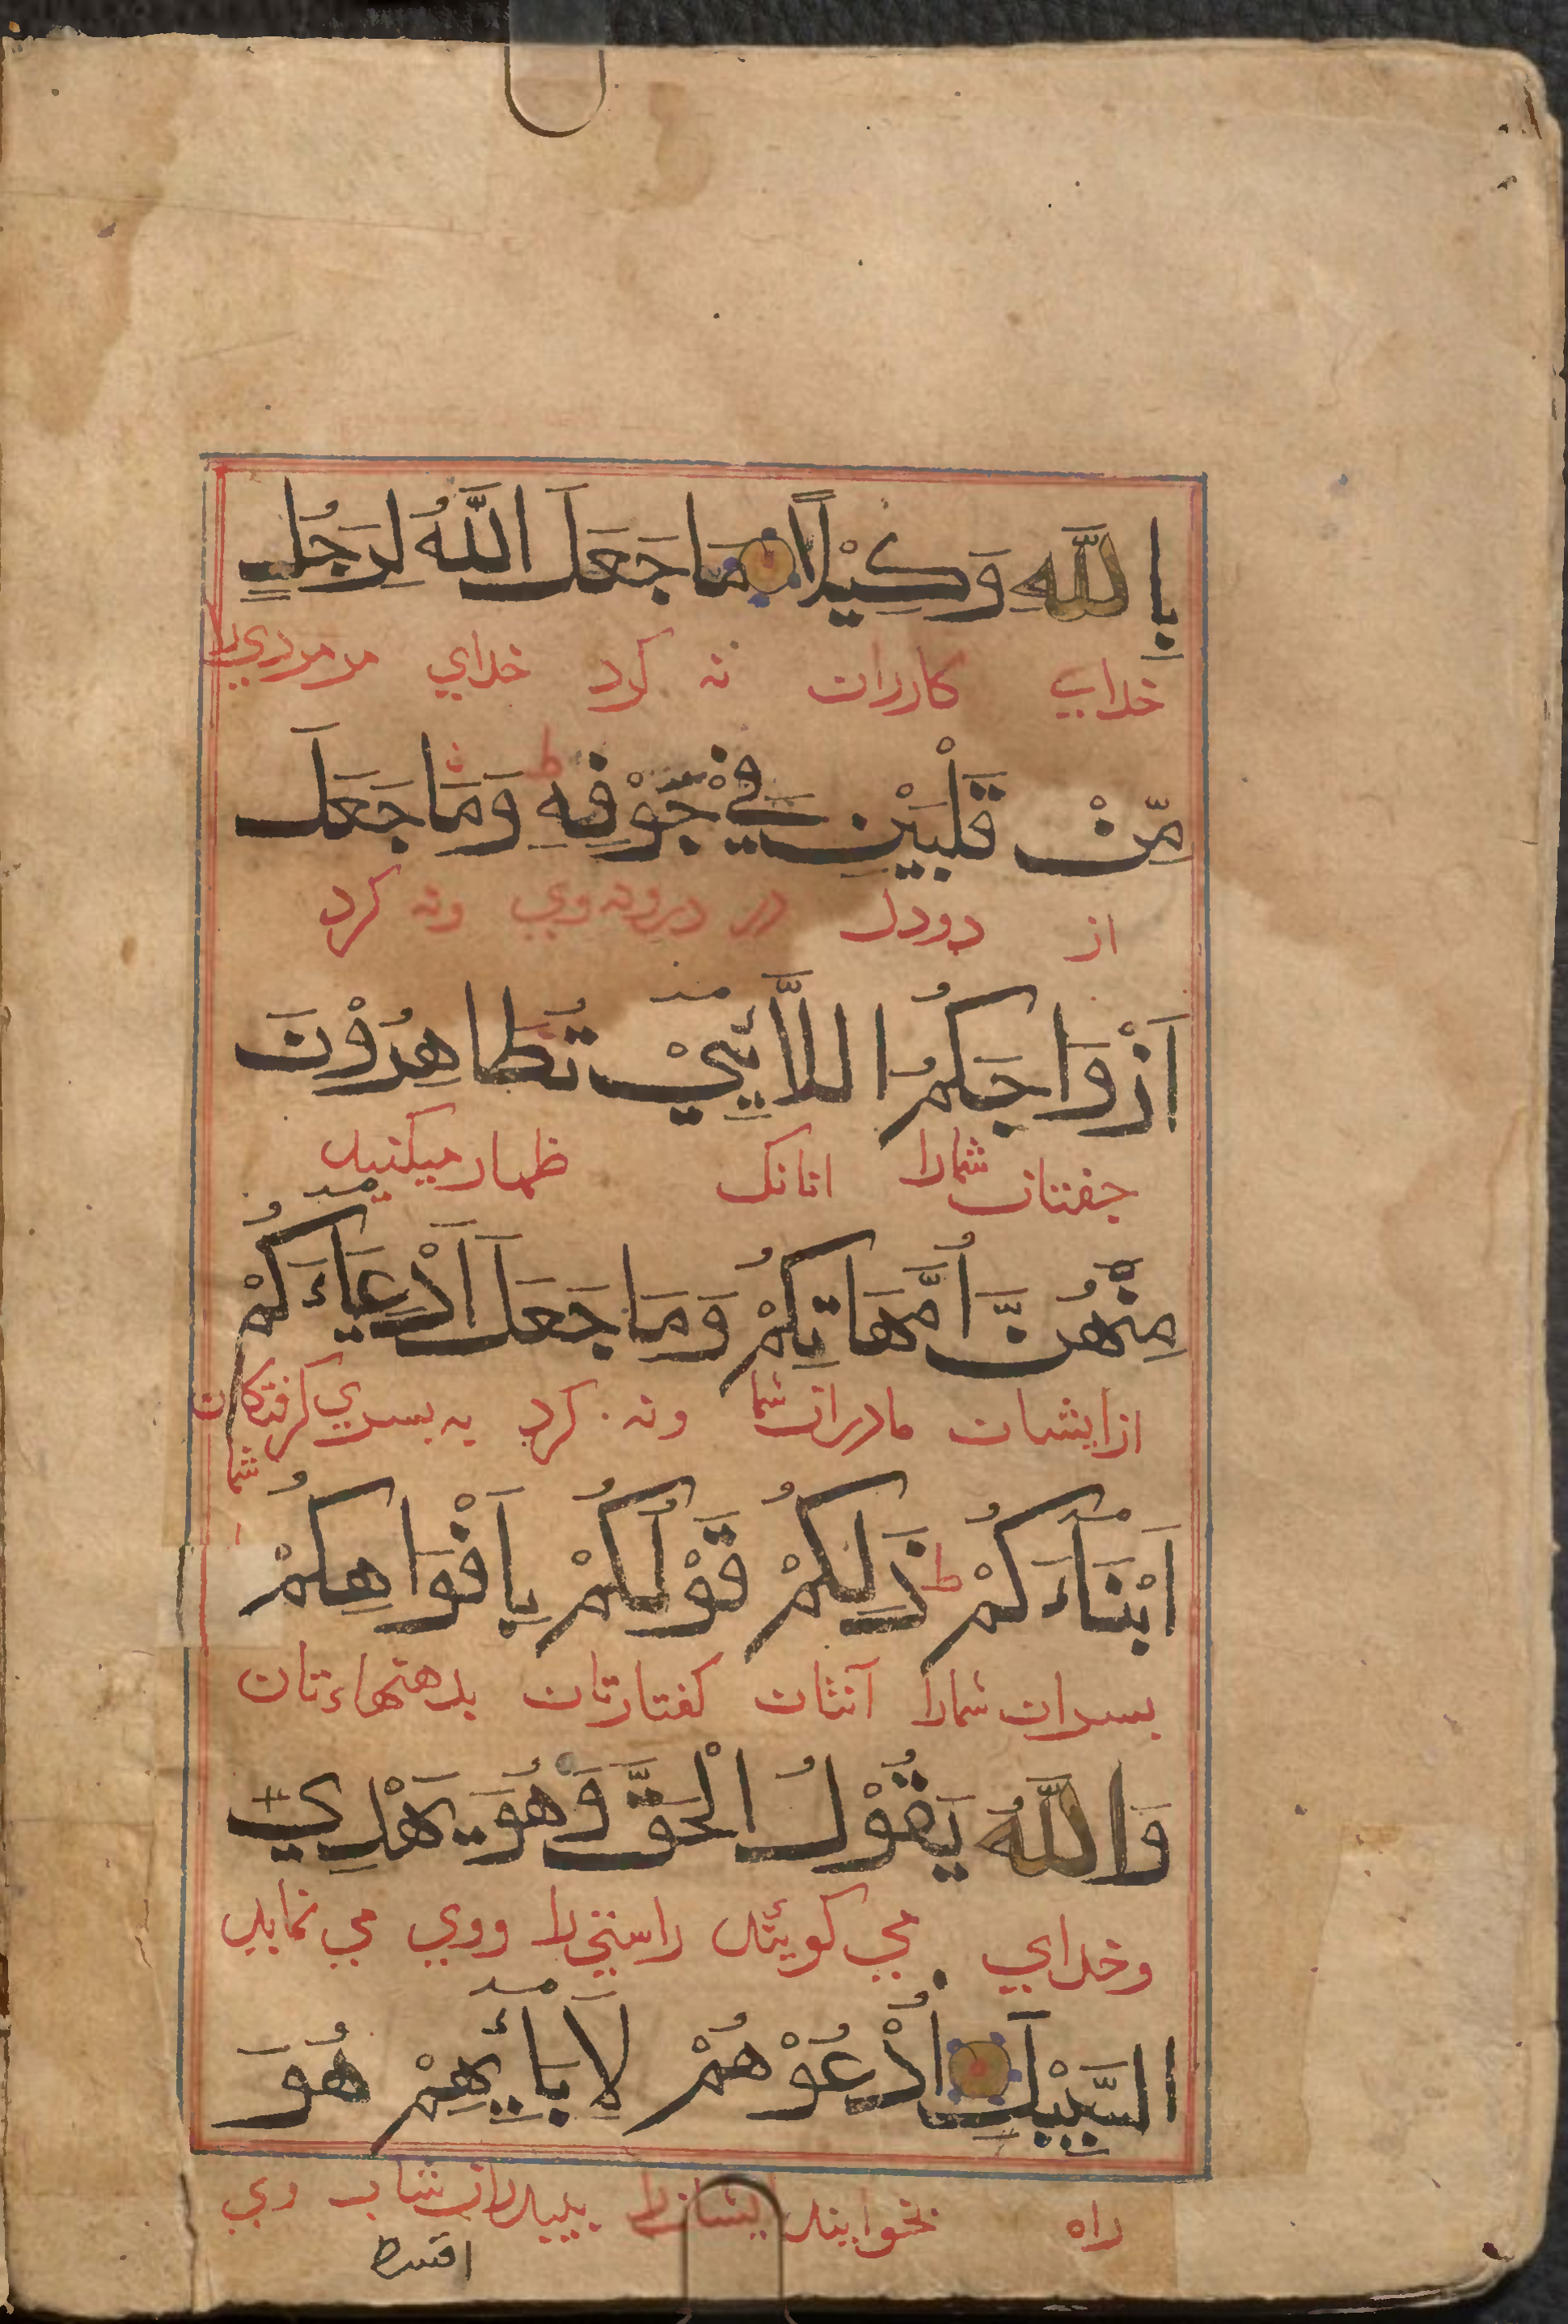 بِاللَّهِ وَكِيْلًا مَا جَعَلَ اللَّهُ لِرَجُلٍ
خدای کارران نه کرد خدای مر مردي را
مِّنْ قَلْبَيْنِ فِيْ جَوْفِهٖ ط وَمَا جَعَلَ
از دودل در درونه وي ونه کرد
اَزْوَاجَكُمُ اللَّائِيْ تُظَاهِرُوْنَ
جفتتان شمارا انانک ظهار میکنید
مِنْهُنَّ اُمَّهَاتِكُمْ وَمَا جَعَلَ اَدْعِيَاءَكُمْ
ازایشان مادران شما ونه کرد به بسري کرفتکان
شما
اَبْنَاءَكُمْ ط ذَلِكُمْ قَوْلُكُمْ بِاَفْوَاهِكُمْ
بسران شمارا آنتان کفتارتان بدهنهاءتان
وَاللَّهُ يَقُوْلُ الْحَقَّ وَهُوَ يَهْدِي
وخداي مي کویند راستي را ووي مي نماید
السَّبِيْلَ اُدْعُوْهُمْ لِاَبَائِهِمْ هُوَ
راه بخوانید ایشانرا وي
اقسط